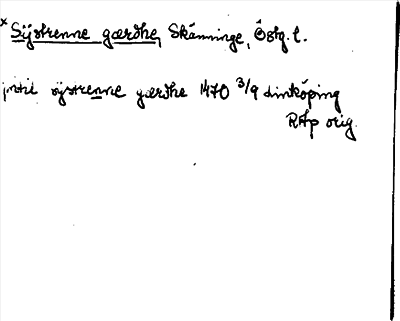 x Sÿstrenne gærdhe, Skänninge, Östg. l.
jntil sÿstrenne gærdhe 1470 3/9 Linköping
RAp orig.